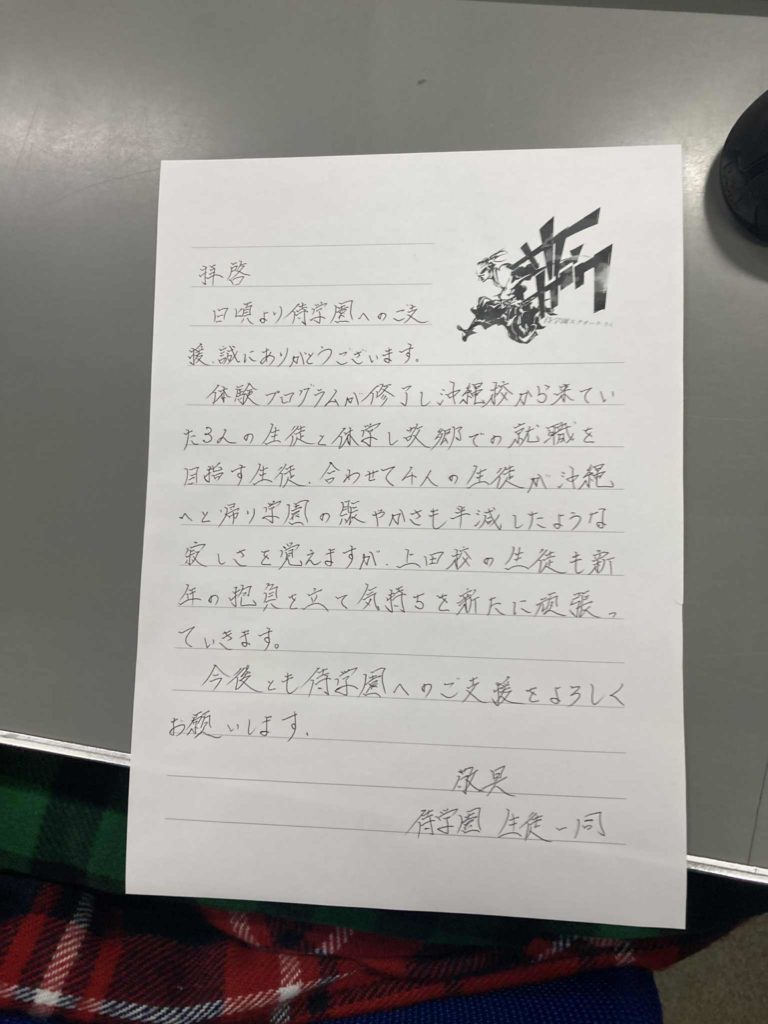 サム
ガク
侍学園スクオーラ・今人
拝啓
日頃より侍学園へのご支
援、誠にありがとうございます。
体験プログラムが修了し沖縄校から来てい
た3人の生徒と休学し故郷での就職を
目指す生徒、合わせて4人の生徒が沖縄
へと帰り学園の賑やかさも半減したような
寂しさを覚えますが、上田校の生徒も新
年の抱負を立て気持ちを新たに頑張っ
ていきます。
今後とも侍学園へのご支援をよろしく
お願いします。
敬具
侍学園 生徒一同